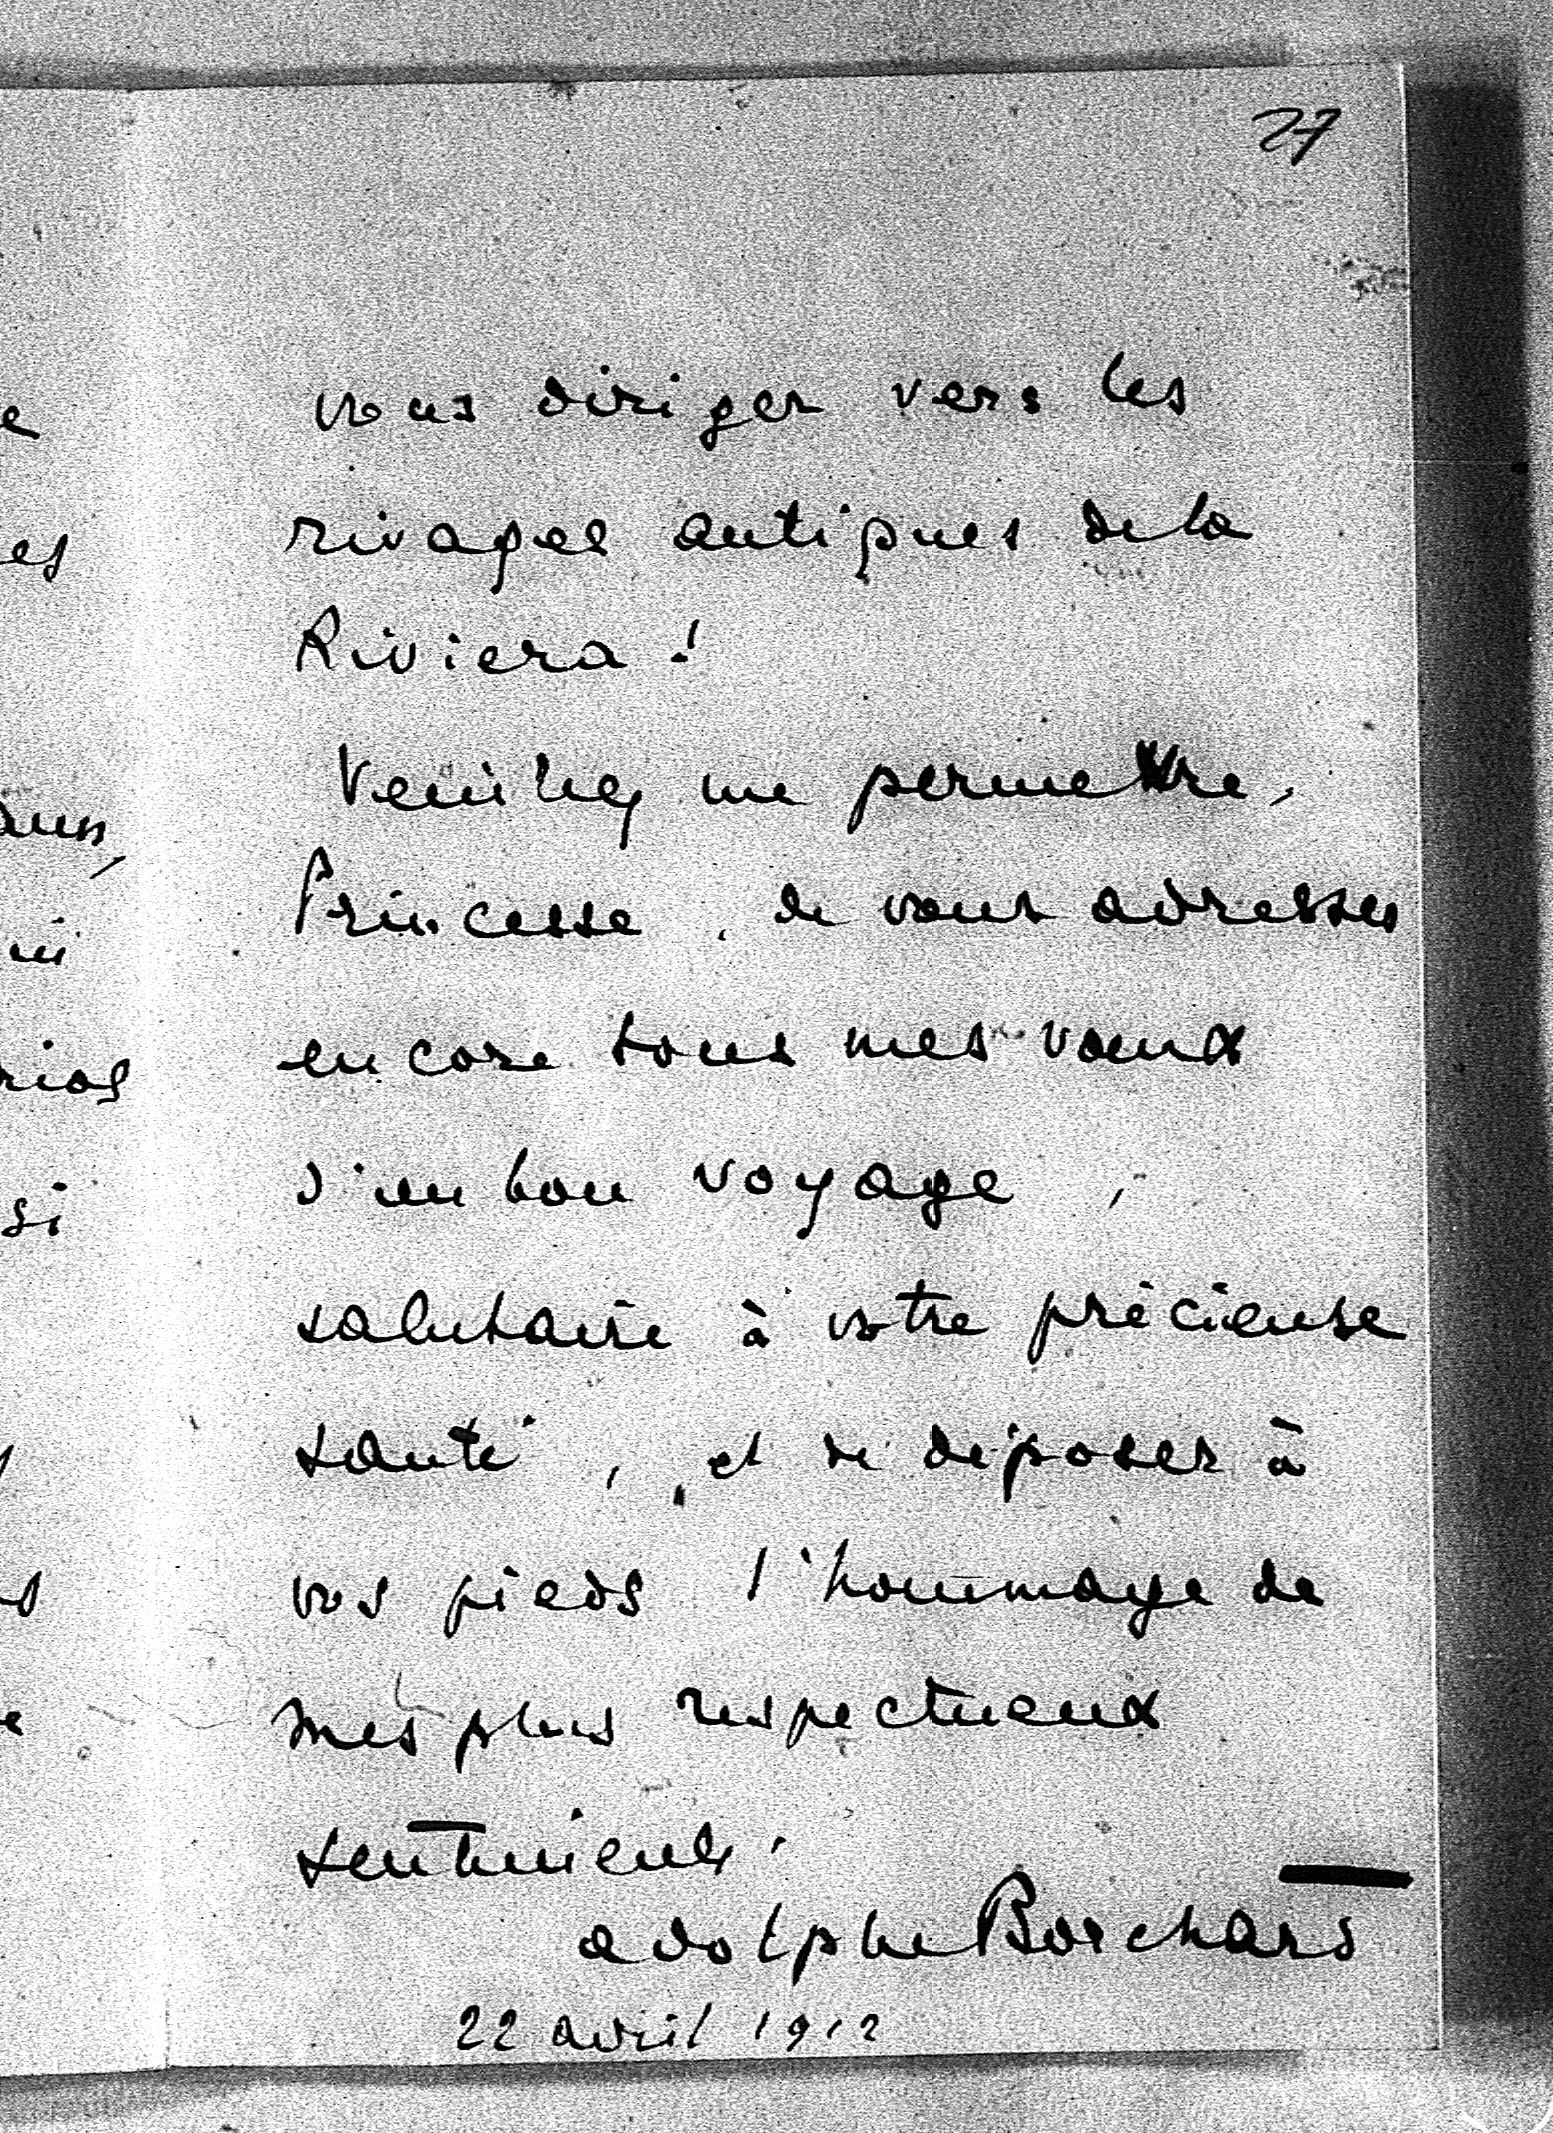 27
vous diriger vers les
rivages antiques de la
Riviera !
Veuillez me permettre,
Princesse, de vous adresser
encore tous mes vœux
d'un bon voyage,
salutaire à votre précieuse
santé, et de déposer à
vos pieds l'hommage de
mes plus respectueux
sentiments.
Adolphe Borchard
22 avril 1912